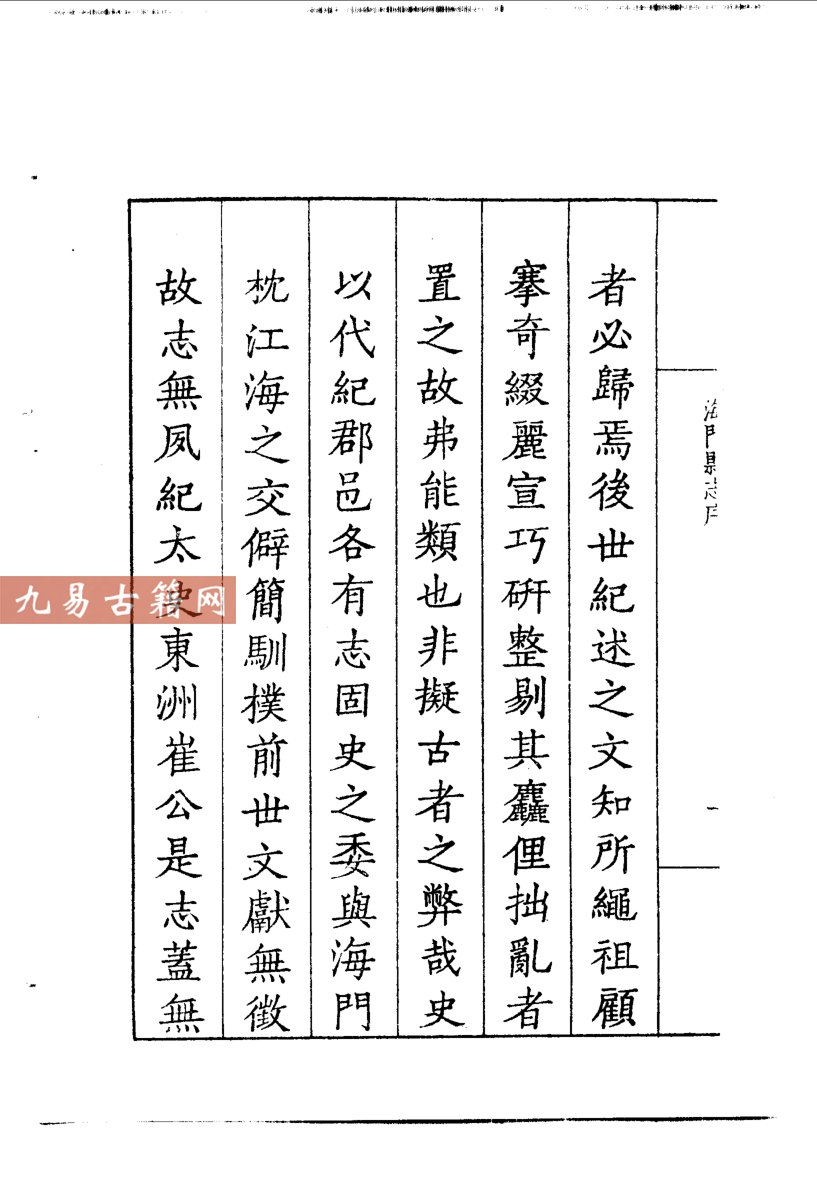 海門縣志序
一
者必歸焉後世紀述之文知所繩祖顧
搴奇綴麗宣巧硏整剔其麤俚拙亂者
置之故弗能類也非擬古者之弊哉史
以代紀郡邑各有志固史之委與海門
枕江海之交僻簡馴樸前世文獻無徵
故志無夙紀太史東洲崔公是志蓋無
九易古籍网